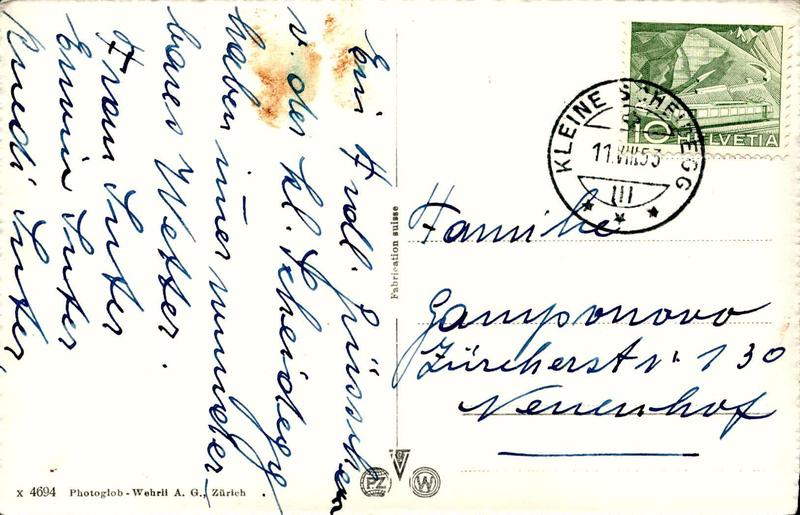 Ein Frdl. Grüsschen
v. der kl. Scheidegg
haben im̄er wunder-
bares Wetter.
Fran Suter
Erwin Suter
Ruedi Suter,
Fabrication suisse
KLEINE SCHEIDEGG
11.VIII.53
10 HELVETIA
Familie
Gamponovo
Zürcherstr. 130
Neuenhof
X 4694 Photoglob-Wehrli A. G., Zürich
PZ W